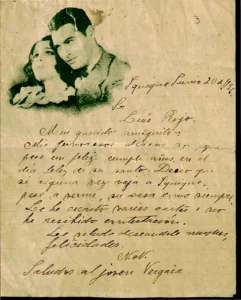 3
Iquique Junio 20 de
Sr
Luis Rojo.
Mi querido amiguito:
Mis fervorosos deseos son que
pase un feliz cumple años, en el
día feliz de su santo. Deseo que
si alguna vez a Iquique,
pase a verme, su casa como siempre.
Le he escrito varias cartas i no
he recibido contestación.
Lo saludo deseandole muchas
felicidades.
Saludos al joven Vergara